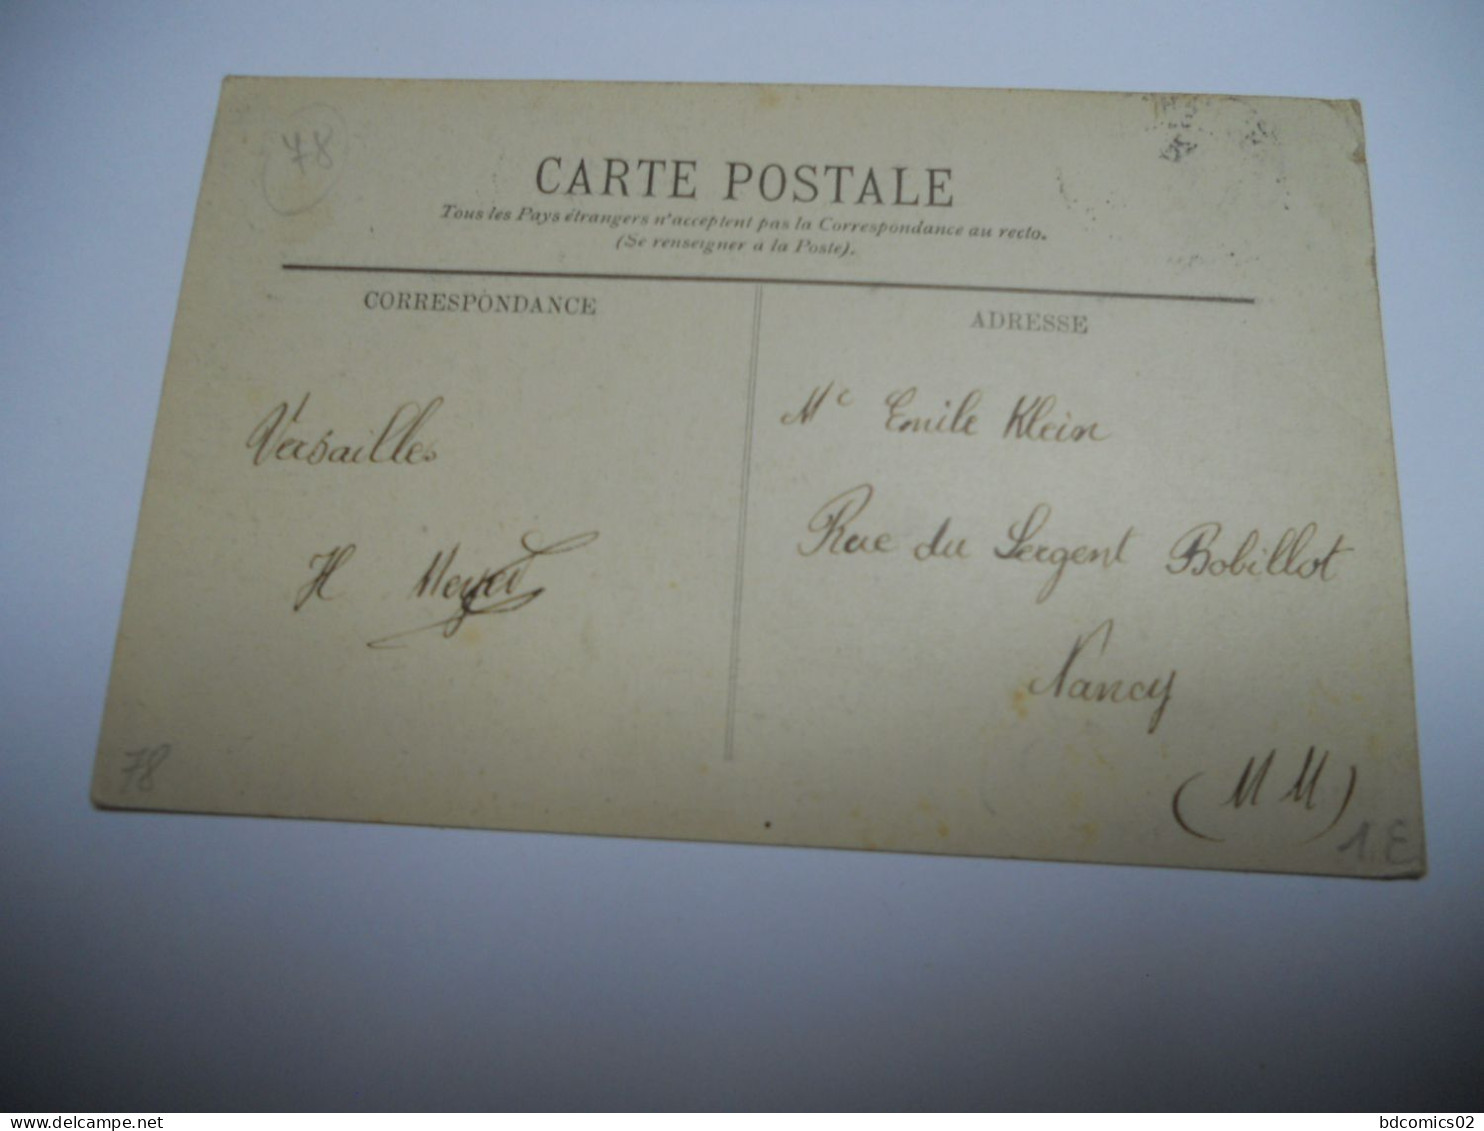 78
CARTE POSTALE
Tous les Pays étrangers n'acceptent pas la Correspondance au recto.
(Se renseigner à la Poste).
CORRESPONDANCE
ADRESSE
Versailles
H Meyer
Mr Emile Klein
Rue du Sergent Bobillot
Nancy
(M M)
78
1. E
bdcomics02